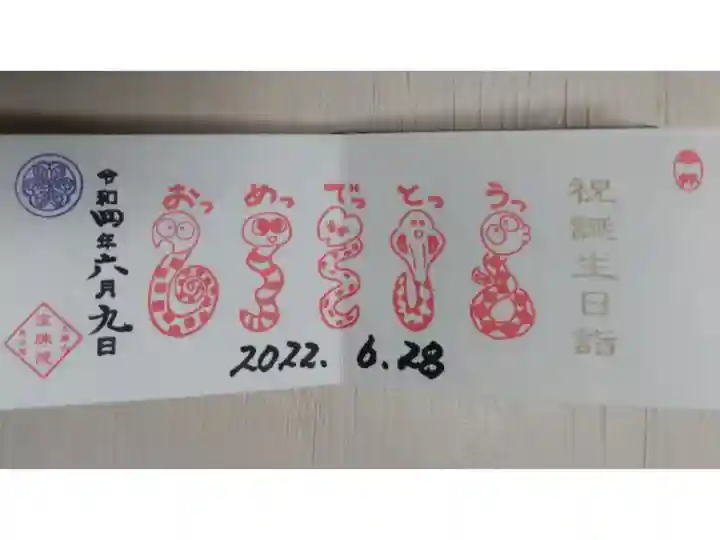 祝誕生日詣
おっ めっ でっ とっ うっ
2022. 6.28
令和四年六月九日
宝珠院